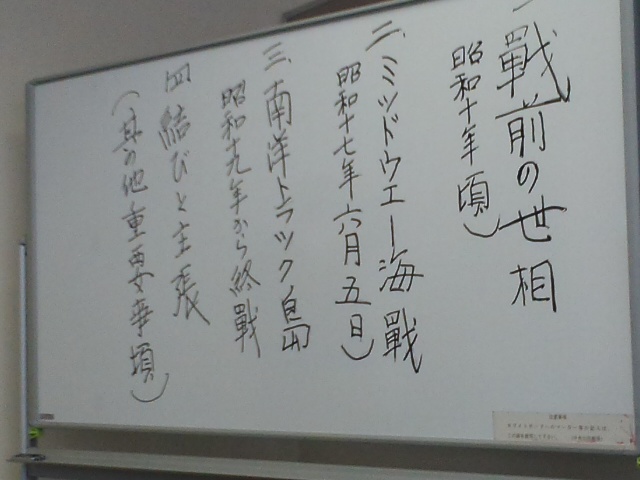 一 戰前の世相
昭和十年頃)
二、ミッドウエー海戰
昭和十七年六月五日)
三、南洋トラック島
昭和十九年から終戰
四 結びと主張
(其の他重要事項)